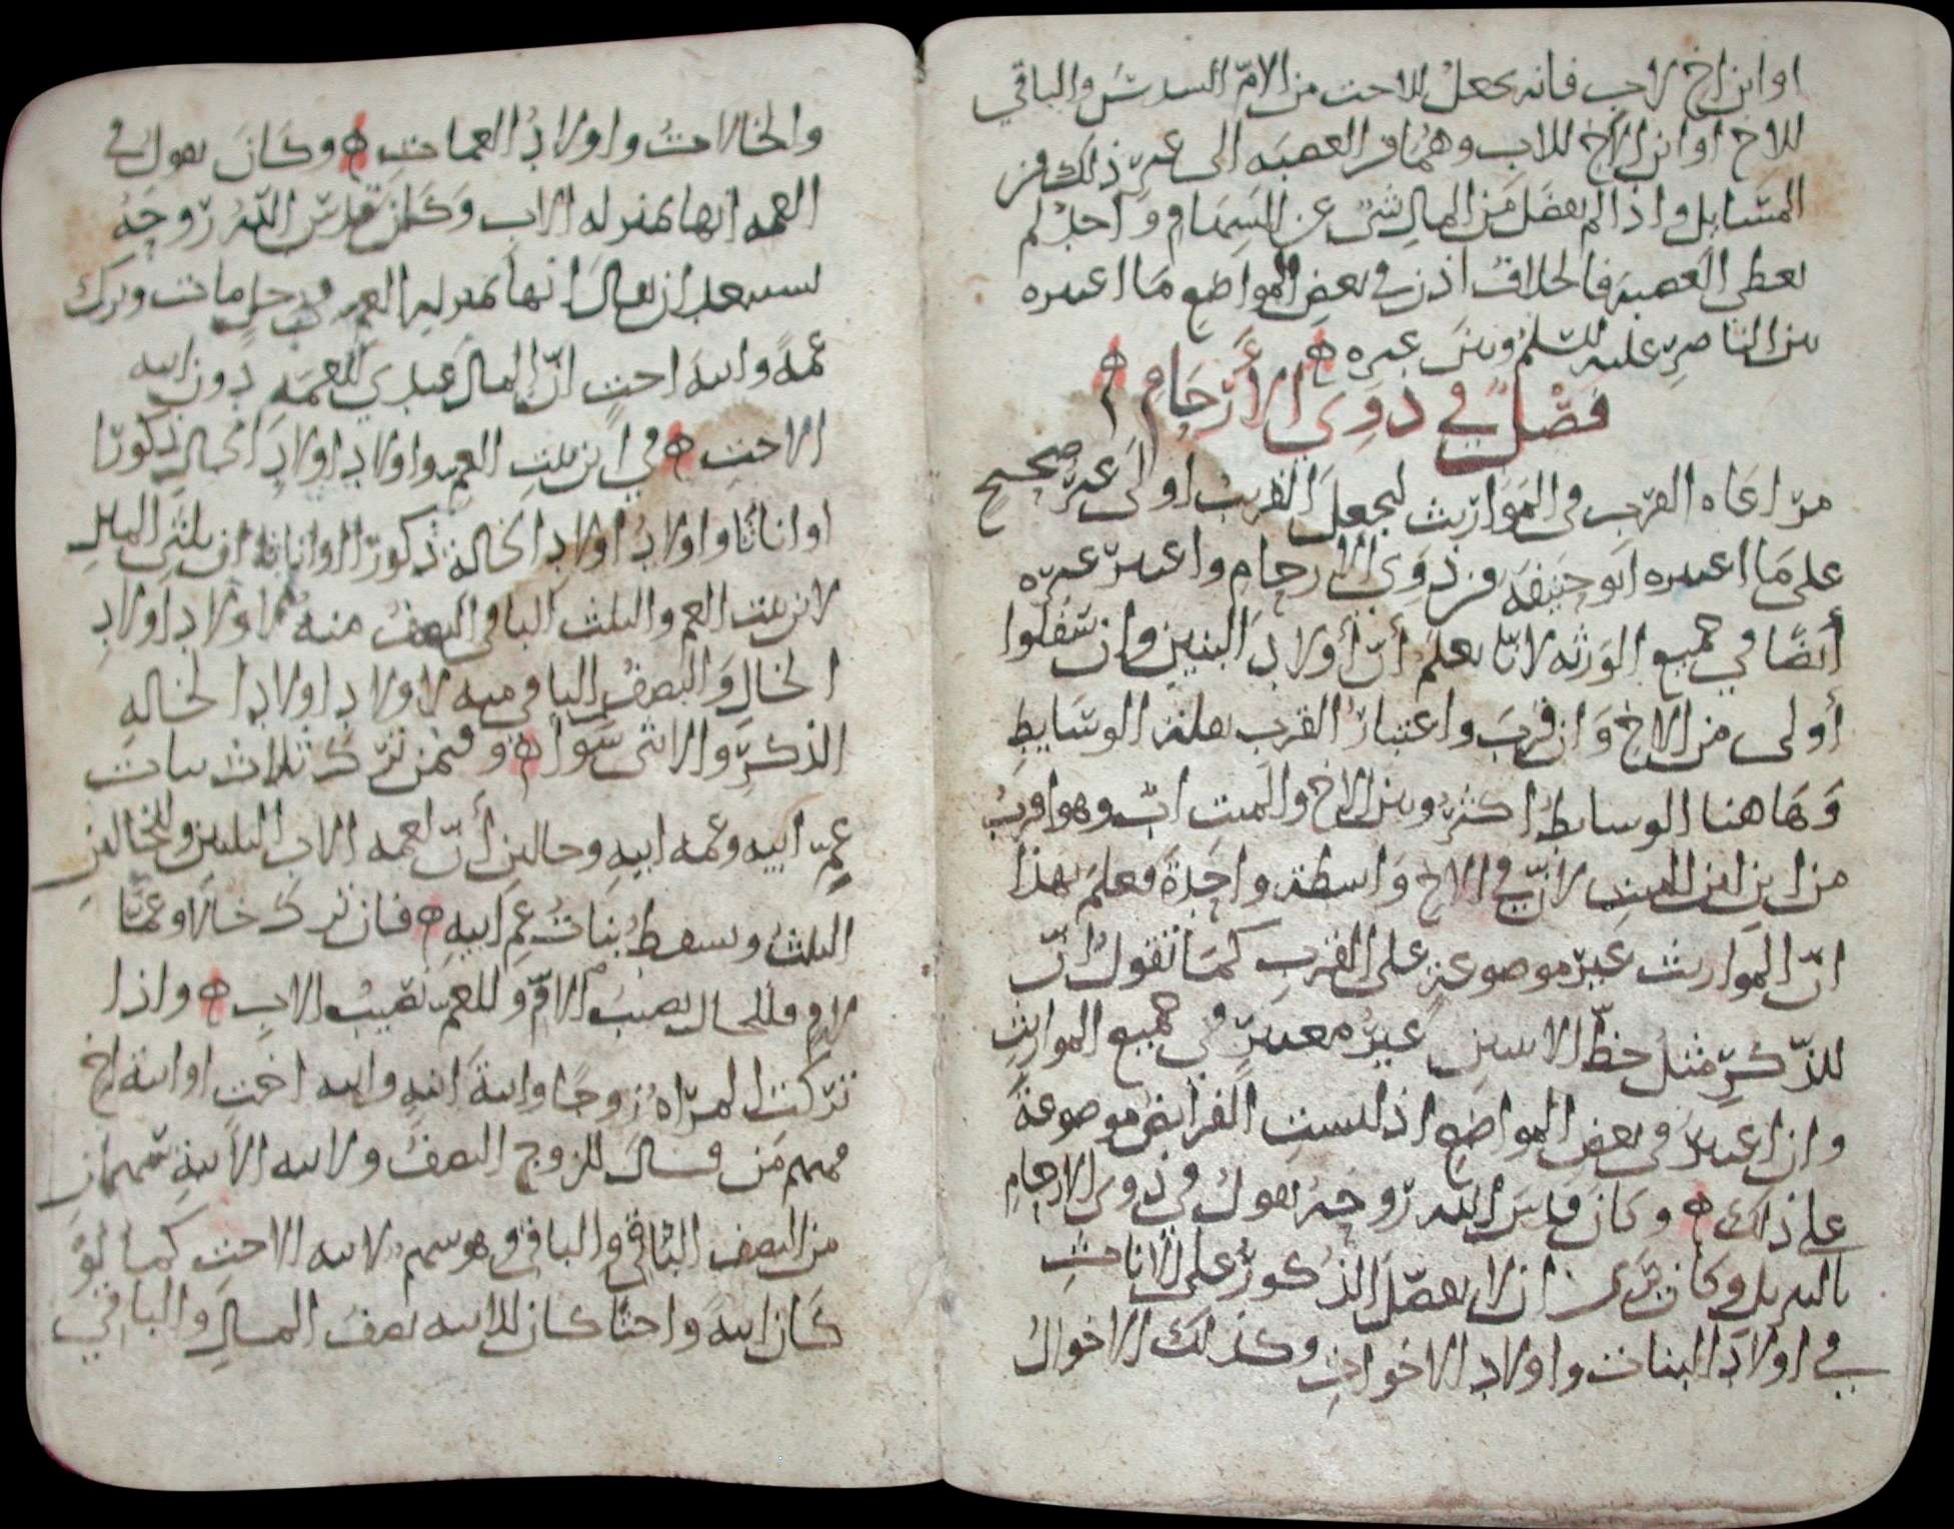 او ابن اخ لاب فانه يجعل للاخت من الامّ السدس والباقي
للاخ او ابن الاخ للاب وهما من العصبه الى غير ذلك من
المسايل واذا لم يفضل من المال شى عن السهام واحد لم
يعطى العصبه فالخلاف اذن في بعض المواضع ما اعتبره
بين الناصر عليه السلم وبين غيره
فصل في ذوي الارحام
مراعاه القرب في المواريث ليجعل القريب اولى غير صحيح
على ما اعتبره ابو حنيفه من ذوي الارحام واعتبر غيره
أيضًا في جميع الورثه لانا نعلم أنّ أولاد البنين وان سفلوا
أولى من الاخ وان قرب واعتبار القرب بقلة الوسايط
وهاهنا الوسايط اكثر وبين الاخ والميت ابٌ وهو اقرب
من ابن ابن ابن الميت لانّ في الاخ واسطة واحدة فعلم بهذا
انّ المواريث غير موضوعة على القرب كما نقول انّ
للذّكر مثل حظّ الانثيين غير معتبر في جميع المواريث
وان اعتبر في بعض المواضع اذ ليست الفرايض موضوعة
على ذلك وكان قدس الله روحه يقول في ذوى الارحام
بالتنزيل وكان يرى ان لا يفضّل الذكور على الاناث
في اولاد البنات واولاد الاخوات وكذلك الاخوال
والخالات واولاد العمات وكان يقول في
العمه انها بمنزله الاب وكان قدس الله روحه
يستبعد ان يقال انها بمنزله العم في رجل مات وترك
عمةً وابنه اخت انّ المال عندي للعمه دون ابنه
الاخت في ابن بنت العم واولاد اولاد الخال ذكورًا
او اناثًا واولاد اولاد الخالة ذكورًا او اناثا ان ثلثي المال
لابن بنت العم والثلث الباقي النصف منه لاولاد اولاد
الخال والنصف الباقي منه لاولاد اولاد الخاله
الذكر والانثى سوا وفيمن ترك ثلاث بنات
عم ابيه وعمه ابيه وخالين أنّ لعمه الاب الثلثين وللخالين
الثلث ويسقط بنات عم ابيه فان ترك خالًا وعمًّا
لام فللخال نصيب الامّ وللعم نصيب الاب واذا
تركت المراه زوجًا وابنة ابنه وابنه اخت او ابنة اخ
فمنهم من قال للزوج النصف ولابنه الابنة سهمان
من النصف الباقي والباقي وهو سهم لابنه الاخت كما لو
كان ابنة واختًا كان للابنه نصف المال والباقي